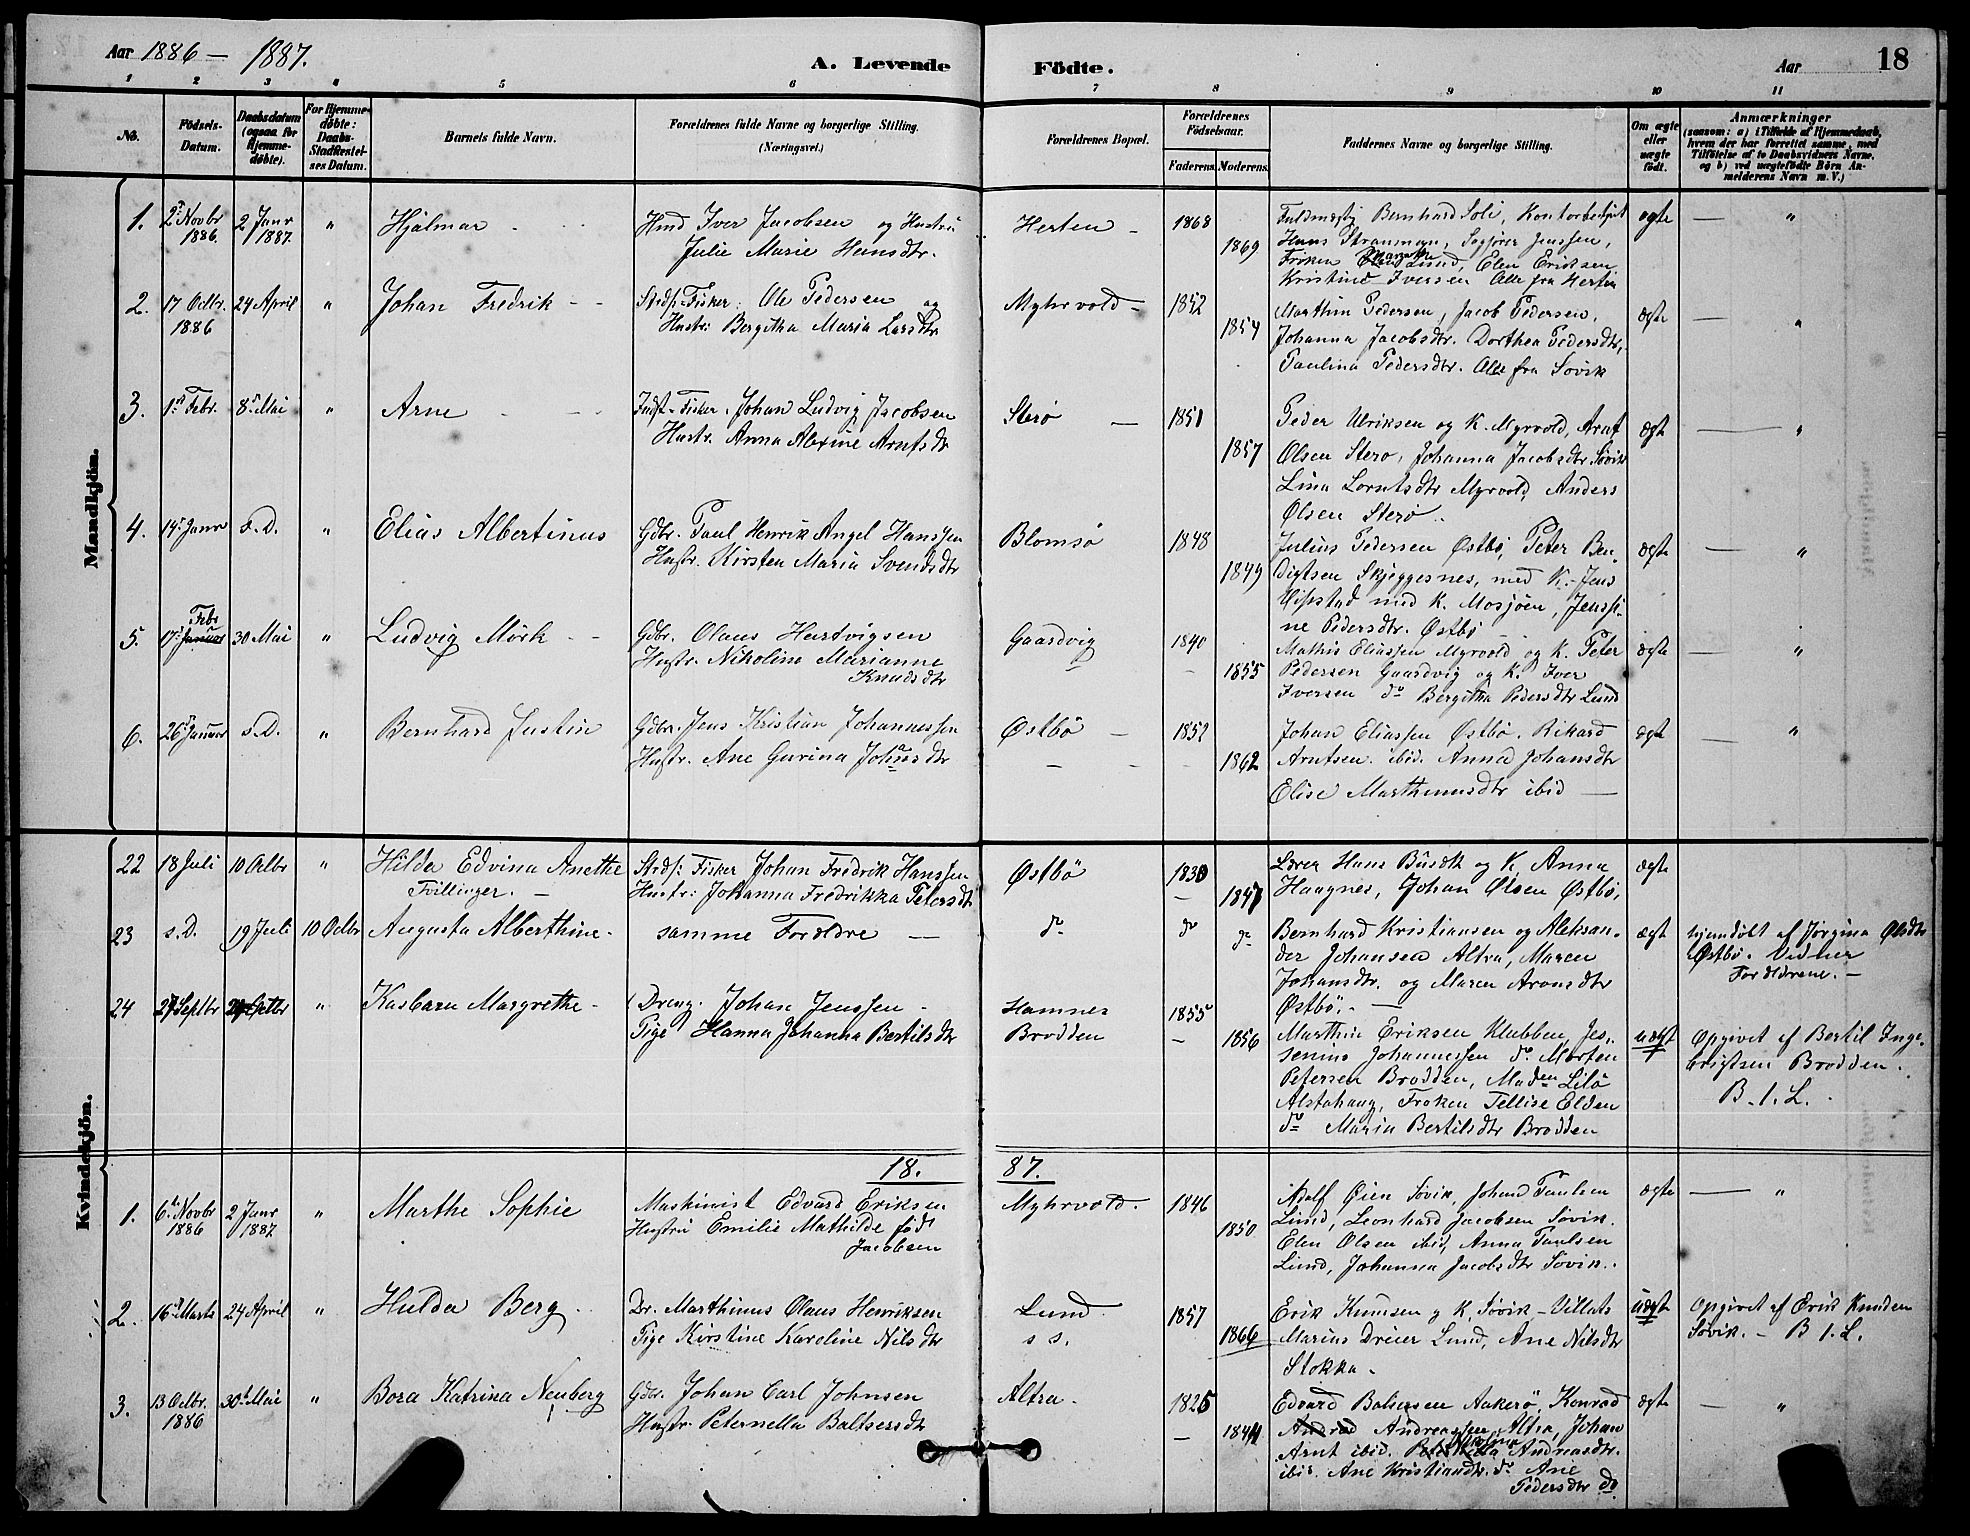 Aar 1886 — 1887.
A. Levende Fødte.
Aar
18
1 2 3 4 5 6 7 8 9 10 11
No.
Fødsels-
Datum.
Daabsdatum
(ogsaa for
Hjemme-
døbte).
For Hjemme-
døbte:
Daabs-
Stadfæstel-
ses Datum.
Barnets fulde Navn.
Forældrenes fulde Navne og borgerlige Stilling.
(Næringsvei.)
Forældrenes Bopæl.
Forældrenes
Fødselsaar.
Faderens. Moderens.
Faddernes Navne og borgerlige Stilling.
Om ægte
eller
uægte
født.
Anmærkninger
(saasom: a) i Tilfælde af Hjemmedaab,
hvem der har forrettet samme, med
Tilføielse af to Daabsvidners Navne,
og b) ved uægtefødte Børn An-
melderens Navn m. V.)
Mandkjön.
1. 2 Novbr 1886. 2 Janr 1887. " Hjalmar
Iver Jacobsen og Hustru
Julie Marie Hansdtr.
Herten — 1868 1869
Bernhard Soli,
Hans Jenssen,
Frøken Lund, Elen Eriksen
Kristine Iversen Alle fra Herten
ægte — "
2. 17 Octbr. 1886 24 April " Johan Fredrik
Strds. Fisker. Ole Pedersen og
Hustr. Bergitha Maria Larsdtr
Myhrvold — 1852 1854
Marthin Pedersen, Jacob Pedersen,
Johanna Jacobsdtr. Dorthea Pedersdtr,
Paulina Pedersdtr. Alle fra Søvik
ægte — "
3. 1ste Febr. 8de Mai " Arne
Indst. Fisker. Johan Ludvig Jacobsen
Hustr. Anna Alexine Arntsdtr
Sterø — 1851 1857
Peder Ulriksen og K. Myrvold, Arnt
Olsen Sterø, Johanna Jacobsdtr Søvik
Lina Lorntsdtr Myrvold, Anders
Olsen Sterø.
ægt — "
4. 14 Janr s.D. " Elias Albertinus
Gdbr. Paul Henrik Angel Hanssen
Hustr. Kirsten Maria Svendsdtr
Blomsø 1848 1849
Julius Pedersen Østbö, Peter Ben-
digtsen Skjeggesnes, med K. Jens
med K. Mosjøen, Jenssi-
ne Pedersdtr. Østbö
ægte — "
5. 17 Febr Januar 30 Mai " Ludvig Mörk
Gdbr. Olaus Hartvigsen
Hustr. Nikoline Marianne
Knudsdtr
Gaardvig 1840 1855
Mathis Eliassen Myrvold og K. Peter
Pedersen Gaardvig og K. Iver
Iversen do Bergitha Pedersdtr Lund
ægte — "
6. 26 Januar s.D. " Bernhard Justin
Gdbr. Jens Kristian Johannessen
Hustr. Ane Gurina Johnsdtr
Østbö — 1852 1862
Johan Eliassen Østbö. Rikard
Arntsen ibid. Anna Johansdtr
Elise Marthinusdtr ibid —
ægt — "
Kvindekjön.
22 18 Juli 10 Octbr " Hilda Edvina Anethe
Tvillinger. —
Strds. Fisker Johan Fredrik Hanssen
Hustr. Johanna Fredrikka Petersdtr
Østbö 1830 1847
Lærer Hans og K. Anna
Haagnes, Johan Olsen Østbö,
ægte
23 s.D. 19 Juli 10 Octbr Augusta Alberthine
samme Forældre —
do do do
Bernhard Kristiansen og Aleksan-
der Johansen Altra, Maren
Johansdtr. og Maren Aronsdtr
Østbö. —
ægt
hjemdöbt af Jörgina Olsdtr
Østbö. Vidner
Forældrene. —
24 27 Septbr " Kasbara Margrethe
Dreng. Johan Jenssen
Pige Hanna Johanna Bertilsdtr
Hamnes
Brodden
1855 — 1856
Marthin Eriksen Klubben, Jes-
senius Johannessen do Morten
Petersen Brodden, Maden Lilø
Alstahaug, Frøken Tellise Elden
do Maria Bertilsdtr Brodden
uægt
Opgivet af Bertil Inge-
brigtsen Brodden.
B. 1. L.
18. 87.
1. 6te Novbr 1886 2 Janr 1887 " Marthe Sophie
Maskinist Edvard Eriksen
Hustru Emilie Mathilde född
Jacobsen
Myhrvold. 1846 1850
Adolf Øien Søvik, Johan Paulsen
Lund, Leonhard Jacobsen Søvik.
Elen Olsen ibid, Anna Paulsen
Lund, Johanna Jacobsdtr Søvik.
ægte — "
2. 16 Marts 24 April " Hulda Berg
Dr. Marthinus Olaus Henriksen
Pige Kirstine Karoline Nilsdtr
Lund
s s.
1857 1866
Erik Knudsen og K. Søvik — Villats
Marius Dreier Lund, Ane Nilsdtr
Stokka.
uægt
Opgivet af Erik Knudsen
Søvik. — B 1. L.
3. 13 Octbr. 1886 30te Mai " Bora Katrina Neuberg
Gdbr. Johan Carl Johnsen
Hustr. Peternella Baltsersdtr
Altra. 1825 — 1844
Edvard Aakerø, Konrad
Andreassen Altra, Johan
Arnt ibid. Andreasdtr.
ibid. Ane Kristiansdtr. do Ane
Pedersdtr do.
ægte — "